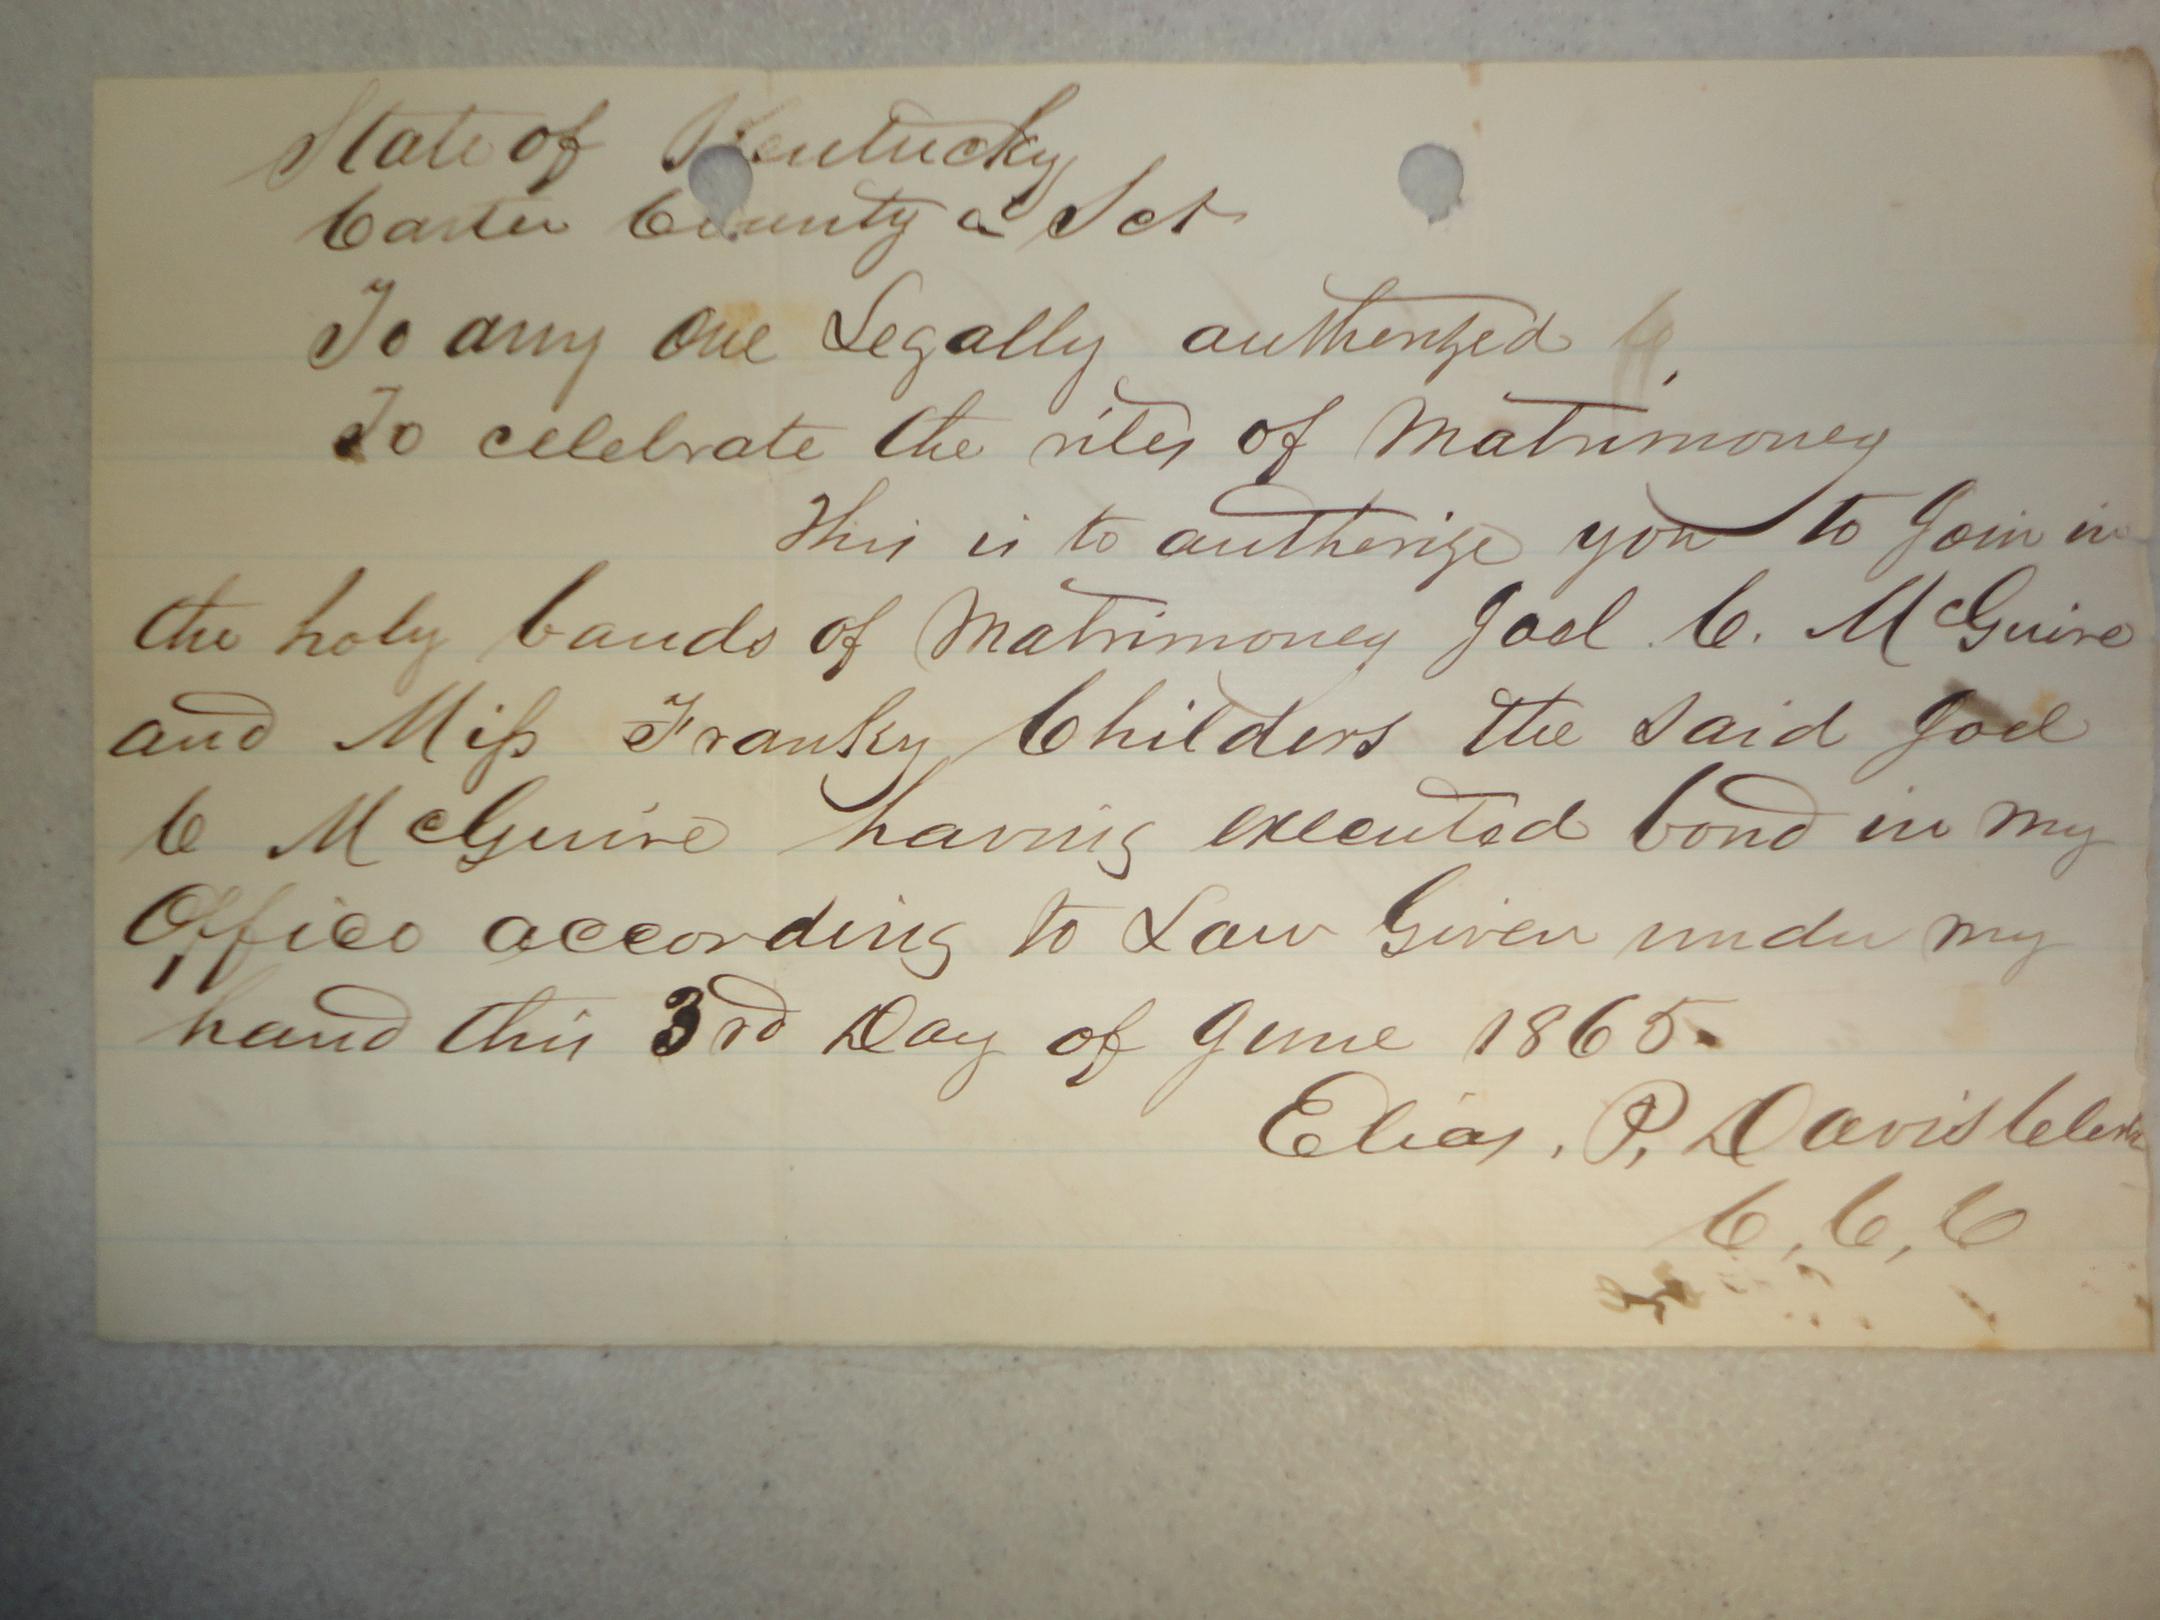 State of Kentucky
Carter County & Sct
To any one Legally autherized
To celebrate the rites of Matrimoney
This is to autherize you to Join in
the holy bands of Matrimoney Joel C. McGuire
and Miss Franky Childers the said Joel
C McGuire having executed bond in my
Office according to Law Given under my
hand this 3rd Day of June 1865.
Elias. P. Davis Clerk
C, C, C